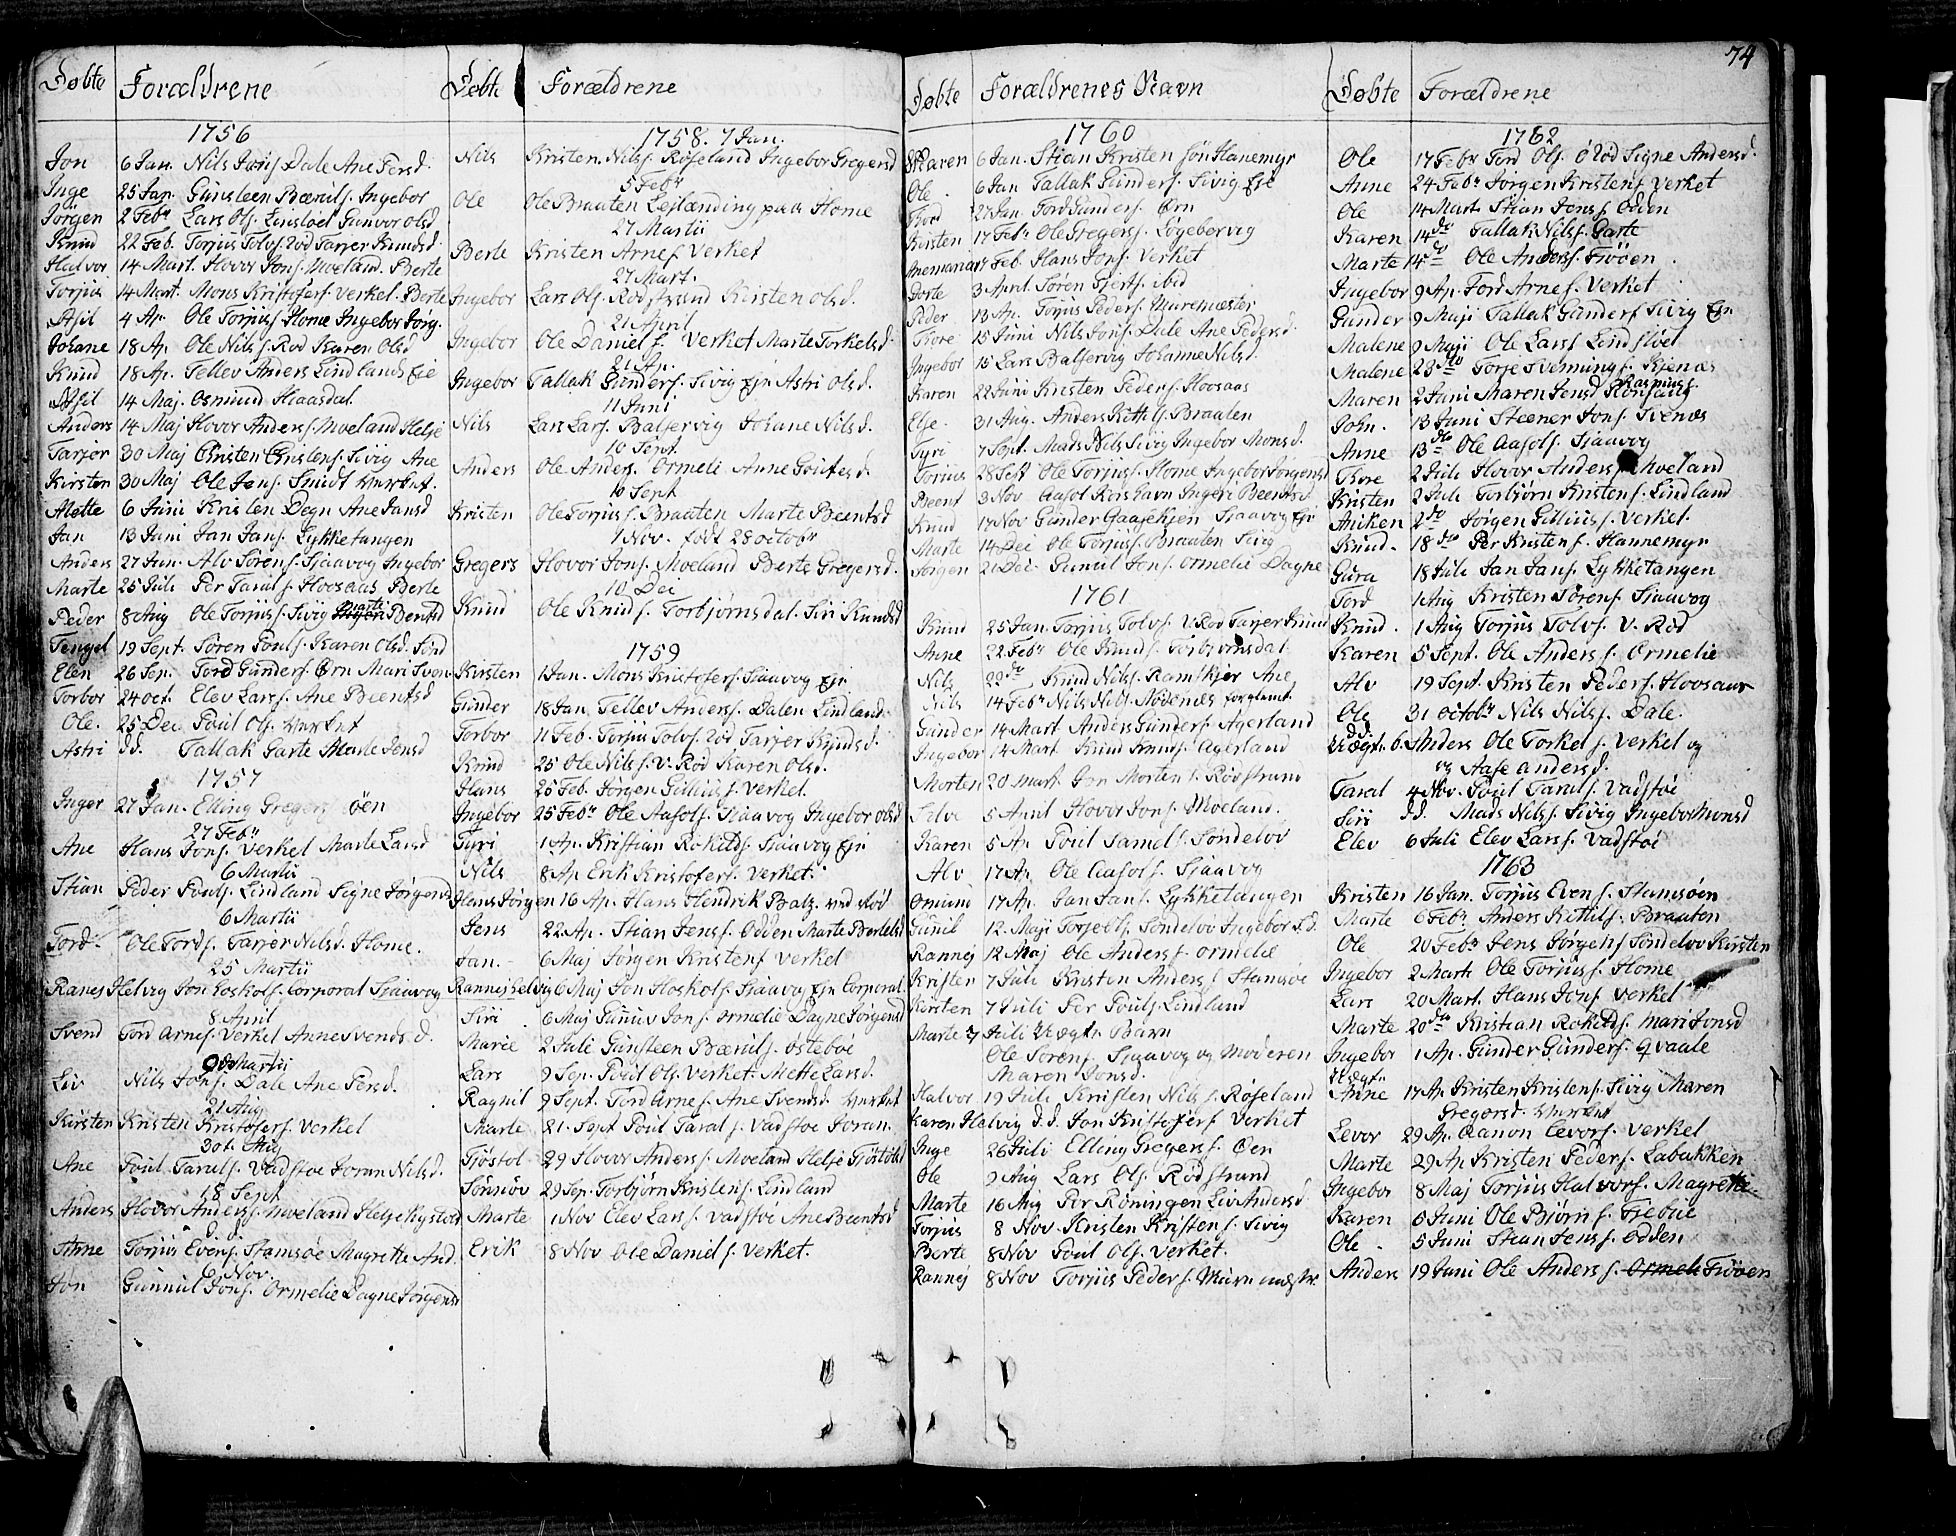 74
Døbte Forældrene
1756
Jon 6 Jan. Nils Jons. Dale Ane Persd.
Inge 25 Jan. Gunsteen Bærnils. Ingebor
Jørgen 2 Febr Lars Ols. Linsloet Gunvor Olsd
Knud 22 Feb. Torjus Tolvs. Rød Tarjer Knudsd.
Halvor 14 Mart. Hovor Jons. Moeland. Berte
Torjus 14 Mart. Mons Kristofers. Verket. Berte
Asil 4 Ap. Ole Torjuss. Home Ingebor Jørg.
Johane 18 Ap. Ole Nils s. Rød Karen Olsd
Knud 18 Ap. Tellev Anders Lindlands Eie
Asil 14 Maj. Osmund Haasdal
Anders 14 Maj Hovor Anders s. Moeland Helje
Tarjer 30 Maj Christen Christens. Sivig Ane
Kirsten 30 Maj Ole Jens. Smidt Verket.
Alette 6 Juni Kristen Degn Ane Jansd
Jan 13 Juni Jan Jans. Lykketangen
Anders 27 Jun. Alv Sørens. Sjaavog Ingebor
Marte 25 Juli Per Tarals s. Hovsaas Berte
Peder 8 Aug Ole Torjus s. Sivig Marte Bentsd
Tengel 19 Sept. Søren Pouls. Karen Olsd.
Elen 26 Sep. Tord Gunders. Ørn Mari Sven
Torbor 24 oct. Elev Lars s. Ane Beentsd
Ole 25 Dec. Poul Ols. Verket
Astri d.d. Tallak Garte Marte Jensd
1757
Inger 27 Jan. Elling Gregers s. Øen
27 Febr
Ane Hans Jons. Verket Marte Larsd
6 Martii
Stian Peder Pouls. Lindland Signe Jørgensd
6 Martii
Tord Ole Tords. Tarjer Nilsd. Home.
25 Martii
Ranei Helvig Jon Hoskols. Corporal Sjaavog
8 April
Svend Tord Arnes. Verket Anne Svends d.
28 Martii
Liv Nils Jons. Dale Ane Persd.
21 Aug
Kirsten Kristen Kristofers. Verket
30t. Aug
Ane Poul Tarals s. Vadstøe Joran Nilsd.
18 Sept
Anders Hovor Anders s. Moeland Helje
d. d.
Anne Torjus Evens. Stamsøe Magrette And.
6 Nov.
Jon Gunnul Jons. Ormelie Dagne Jørgensd
Døbte Forældrene
1758. 7 Jan.
Nils Kristen. Nils s. Røseland Ingebor Gregersd
5 Febr
Ole Ole Braaten Lejlænding paa Home
27 Martii
Berte Kristen Arnes. Verket
27 Mart.
Ingebor Lars Ols. Rødstrand Kirsten Olsd.
21 April
Ingebor Ole Daniel s. Verket Marte Torkelsd.
21 Ap.
Ingebor Tallak Gunders s. Sivig Eje Astri Olsd.
11 Juni
Nils Lars Lars. Balservig Johane Nilsd.
10 Sept.
Anders Ole Anders. Ormeli Anne
10 Sept
Kristen Ole Torjus s. Braaten Marte Beentsd
1 Nov. født 28 octobr
Gregers Hovor Jons. Moeland Berte Gregersd.
10 Dec
Knud Ole Knud s. Torbjørnsdal. Siri Knudsd
1759
Kirsten 1 Jan. Mons Kristofers. Sjaavog Eje
Gunder 18 Jan Tellev Anders s. Dalen Lindland.
Torbor 11 Feb. Torjus Tolvs. Rød Tarjer Knudsd.
Knud 25 Ole Nils s. V. Rød Karen Olsd.
Hans 25 Feb. Jørgen Gulliks s. Verket.
Ingebor 25 Febr Ole Aasols s. Sjaavog Ingebor Olsd
Gyri 1 Ap. Kristian Rokelds. Sjaavog Eje
Nils 8 Ap Erik Kristofers. Verket.
Hans Jørgen 16 Ap. Hans Hendrik Balz. ved Slød
Jens 22 Ap. Stian Jens s. Odden Marte Bertelsd
Jan. 6 Maj Jørgen Kristens Verket
Rannei Helvig 6 Maj Jon Hoskols s. Sjaavog Eje Corporal.
Siri 6 Maj Gunuv Jons. Ormelie Dagne Jørgensd
Marie 2 Juli Gunsteen Bærnils. Østebøe
Lars 9 Sep. Poul Ols. Verket. Mette Larsd.
Ragnil 9 Sept. Tord Arnes. Ane Svendsd. Verket
Marte 21. Sept Poul Taral s. Vadstøe Joran.
Tjøstol 29 Hovor Anders s. Moeland Helje Tjøstolsd
Sønnøv 29 Sep. Torbjørn Kristens. Lindland
Marte 1 Nov Elev Lars s. Vadstøe Ane Beentsd
Erik 8 Nov Ole Daniel s. Verket.
Døbte Forældrenes Navn
1760
Maren 6 Jan. Stian Kristen søn Hanemyr
Ole 6 Jan Tallak Gunders s. Sivig Eje
Tord 27 Jan. Tord Gunders s. Ørn
Kirsten 17 Febr Ole Gregers s. Løgebervig
Anemaria 17 Feb. Hans Jons. Verket
Dorte 3 April Søren Gjerts s. ibid
Peder 13 Ap. Torjus Peders. Muremæster
Tore 15 Juni Nils Jons. Dale Ane Pedersd.
Ingebor 15 Lars Balservig Johanne Nilsd.
Karen 22 Juni Kristen Peders. Hovsaas
Else 31 Aug. Anders Kittils s. Braaten
Gyri 7 Sept. Mads Nils Sivig Ingebor Monsd.
Torjus 28 Sept Ole Torjuss. Home Ingebor Jørgensd
Beent 3 Nov Aasol Kirshavn Ingeri Beentsd
Knud 17 Nov Gunder Gaasekjen Sjaavog Eje
Marte 14 Dec Ole Torjus s. Braaten Sivig
Jørgen 21 Dec. Gunul Jons. Ormelie Dagne
1761
Knud 25 Jan. Torjus Tolvs. V. Rød Tarjer Knud
Anne 22 Febr Ole Knuds s. Torbiørnsdal
Nils 22 do Knud Nils s. Ramskjer Ane
Nils 14 Febr Nils Nils s. Mødenes
Gunder 14 Mart Anders Gunders s. Agerland
Ingebor 14 Mart Knud Knuds. Agerland
Morten 20 Mart. Morten s. Rødstrand
Selvi 5 April Hovor Jons. Moeland.
Karen 5 Ap Poul Samuels. Søndeløv
Alv 17 Ap. Ole Aasols s. Sjaavog
Omund 17 Ap. Jan Jans. Lykketangen
Gunil 12 Maji Torje Ols. Søndeløv Ingebor T.d.
Rannej 12 Maj Ole Anders s. Ormelie
Kristen 7 Juli Kristen Anders s. Stamsøe
Kirsten 7 Juli Per Pouls. Lindland
Marte 7 Juli Uægte Barn
Ole Sørens. Sjaavog og Moderen
Maren Jonsd.
Halvor 19 Juli Kristen Nils s. Røseland
Karen Helvig d.d. Jon Kristofers Verket
Inge 26 Juli Elling Gregers s. Øen
Ole 9 Aug Lars Ols. Rødstrand
Marte 16 Aug Per Røningen Liv Andersd
Torjus 8 Nov. Kristen Kristens s. Sivig
Berte 8 Nov Poul Ols. Verket.
Rannej 8 Nov Torjus Peder s. Murmæstr
Døbte Forældrene
1762
Ole 17 Febr Tord Ols. Ørød Signe Andersd.
Anne 24 Febr Jørgen Kristens. Verket
Ole 14 Mart. Stian Jens s. Odden
Karen 14 do Tallak Nils s. Garte
Marte 14 do Ole Anders s. Frøen.
Ingebor 9 Ap. Tord Arnes. Verket
Gunder 9 Maji Tallak Gunders s. Sivig Eje
Malene 9 Maji Ole Lars s. Lindsløet
Malene 23 do Torje Svennungs. Kjenæs
Maren 2 Juni Maren Jensd Rasmus s.
John. 13 Juni Steener Jons. Svenæs
Anne 13 do Ole Aasols. Sjaavog
Tore 2 Juli Hovor Anders s. Moeland
Kristen 2 Juli Torbjørn Kristens. Lindland
Aniken 2 do Jørgen Gulliks s. Verket.
Knud. 18 do Per Kristens s. Hannemyr
Gura 18 Juli Jan Jans. Lykketangen
Tord 1 Aug Kristen Sørens. Sjaavog
Knud. 1 Aug Torjus Tolvs. V. Rød
Karen 5 Sept. Ole Anders s. Ormelie
Alv 19 Sept. Kristen Peders. Hovsaas
Ole 31 Octobr Nils Nils s. Dale.
d.d.
Uægt. b. Anders Ole Torkel s. Verket og
Aase Andersd.
Taral 4 Nov. Poul Tarals s. Vadstøe
Siri d.d. Mads Nils s. Sivig Ingebor Monsd
Elev 6 Juli Elev Lars s. Vadstøe
1763
Kristen 16 Jan. Torjus Even s. Stamsøen
Marte 6 Febr. Anders Kittils s. Braaten
Ole 20 Febr Jens Jørgens Søndeløv Kirsten
Ingebor 2 Mart. Ole Torjus s. Home
Lars 20 Mart. Hans Jons. Verket
Marte 20 do Kristian Rokelds. Mari Jonsd
Ingebor 1 Ap. Gunder Gunders. Qvaale
Uægte
Anne 17 Ap. Kristen Kristens. Sivig Maren
Gregersd. Verket
Levor 29 Ap. Aanon Levors. Verket
Marte 29 Ap Kristen Peders. Labakken
Ingebor 8 Maj Torjus Halvors. Magrette
Karen 5 Juni Ole Bjørn s. Trebue
Ole. 5 Juni Stian Jens s. Odden
Anders 19 Juni Ole Anders s. Ormeli Frøen